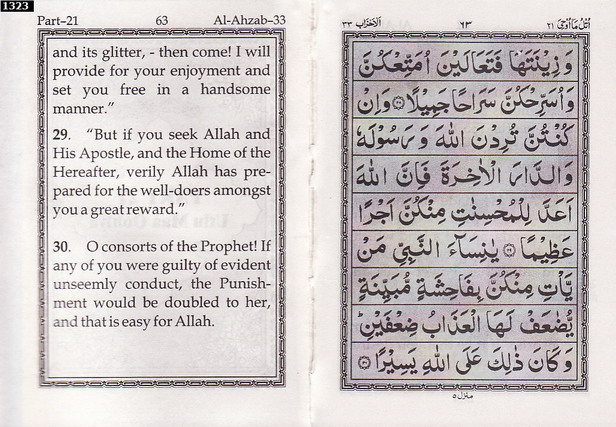 1323
Part–21 63 Al-Ahzab–33
and its glitter, - then come! I will
provide for your enjoyment and
set you free in a handsome
manner.”
29. “But if you seek Allah and
His Apostle, and the Home of the
Hereafter, verily Allah has pre-
pared for the well-doers amongst
you a great reward.”
30. O consorts of the Prophet! If
any of you were guilty of evident
unseemly conduct, the Punish-
ment would be doubled to her,
and that is easy for Allah.
اُتْلُ مَآ اُوْحِیَ ٢١ ٦٣ اَلْاَحْزَاب ٣٣
وَ زِیْنَتَهَا فَتَعَالَیْنَ اُمَتِّعْكُنَّ
وَ اُسَرِّحْكُنَّ سَرَاحًا جَمِیْلًا ﴿٢٨﴾ وَ اِنْ
كُنْتُنَّ تُرِدْنَ اللّٰهَ وَ رَسُوْلَهٗ
وَ الدَّارَ الْاٰخِرَةَ فَاِنَّ اللّٰهَ
اَعَدَّ لِلْمُحْسِنٰتِ مِنْكُنَّ اَجْرًا
عَظِیْمًا ﴿٢٩﴾ یٰنِسَآءَ النَّبِیِّ مَنْ
یَّاْتِ مِنْكُنَّ بِفَاحِشَةٍ مُّبَیِّنَةٍ
یُّضٰعَفْ لَهَا الْعَذَابُ ضِعْفَیْنِ ؕ
وَ كَانَ ذٰلِكَ عَلَی اللّٰهِ یَسِیْرًا ﴿٣٠﴾
منزل ٥